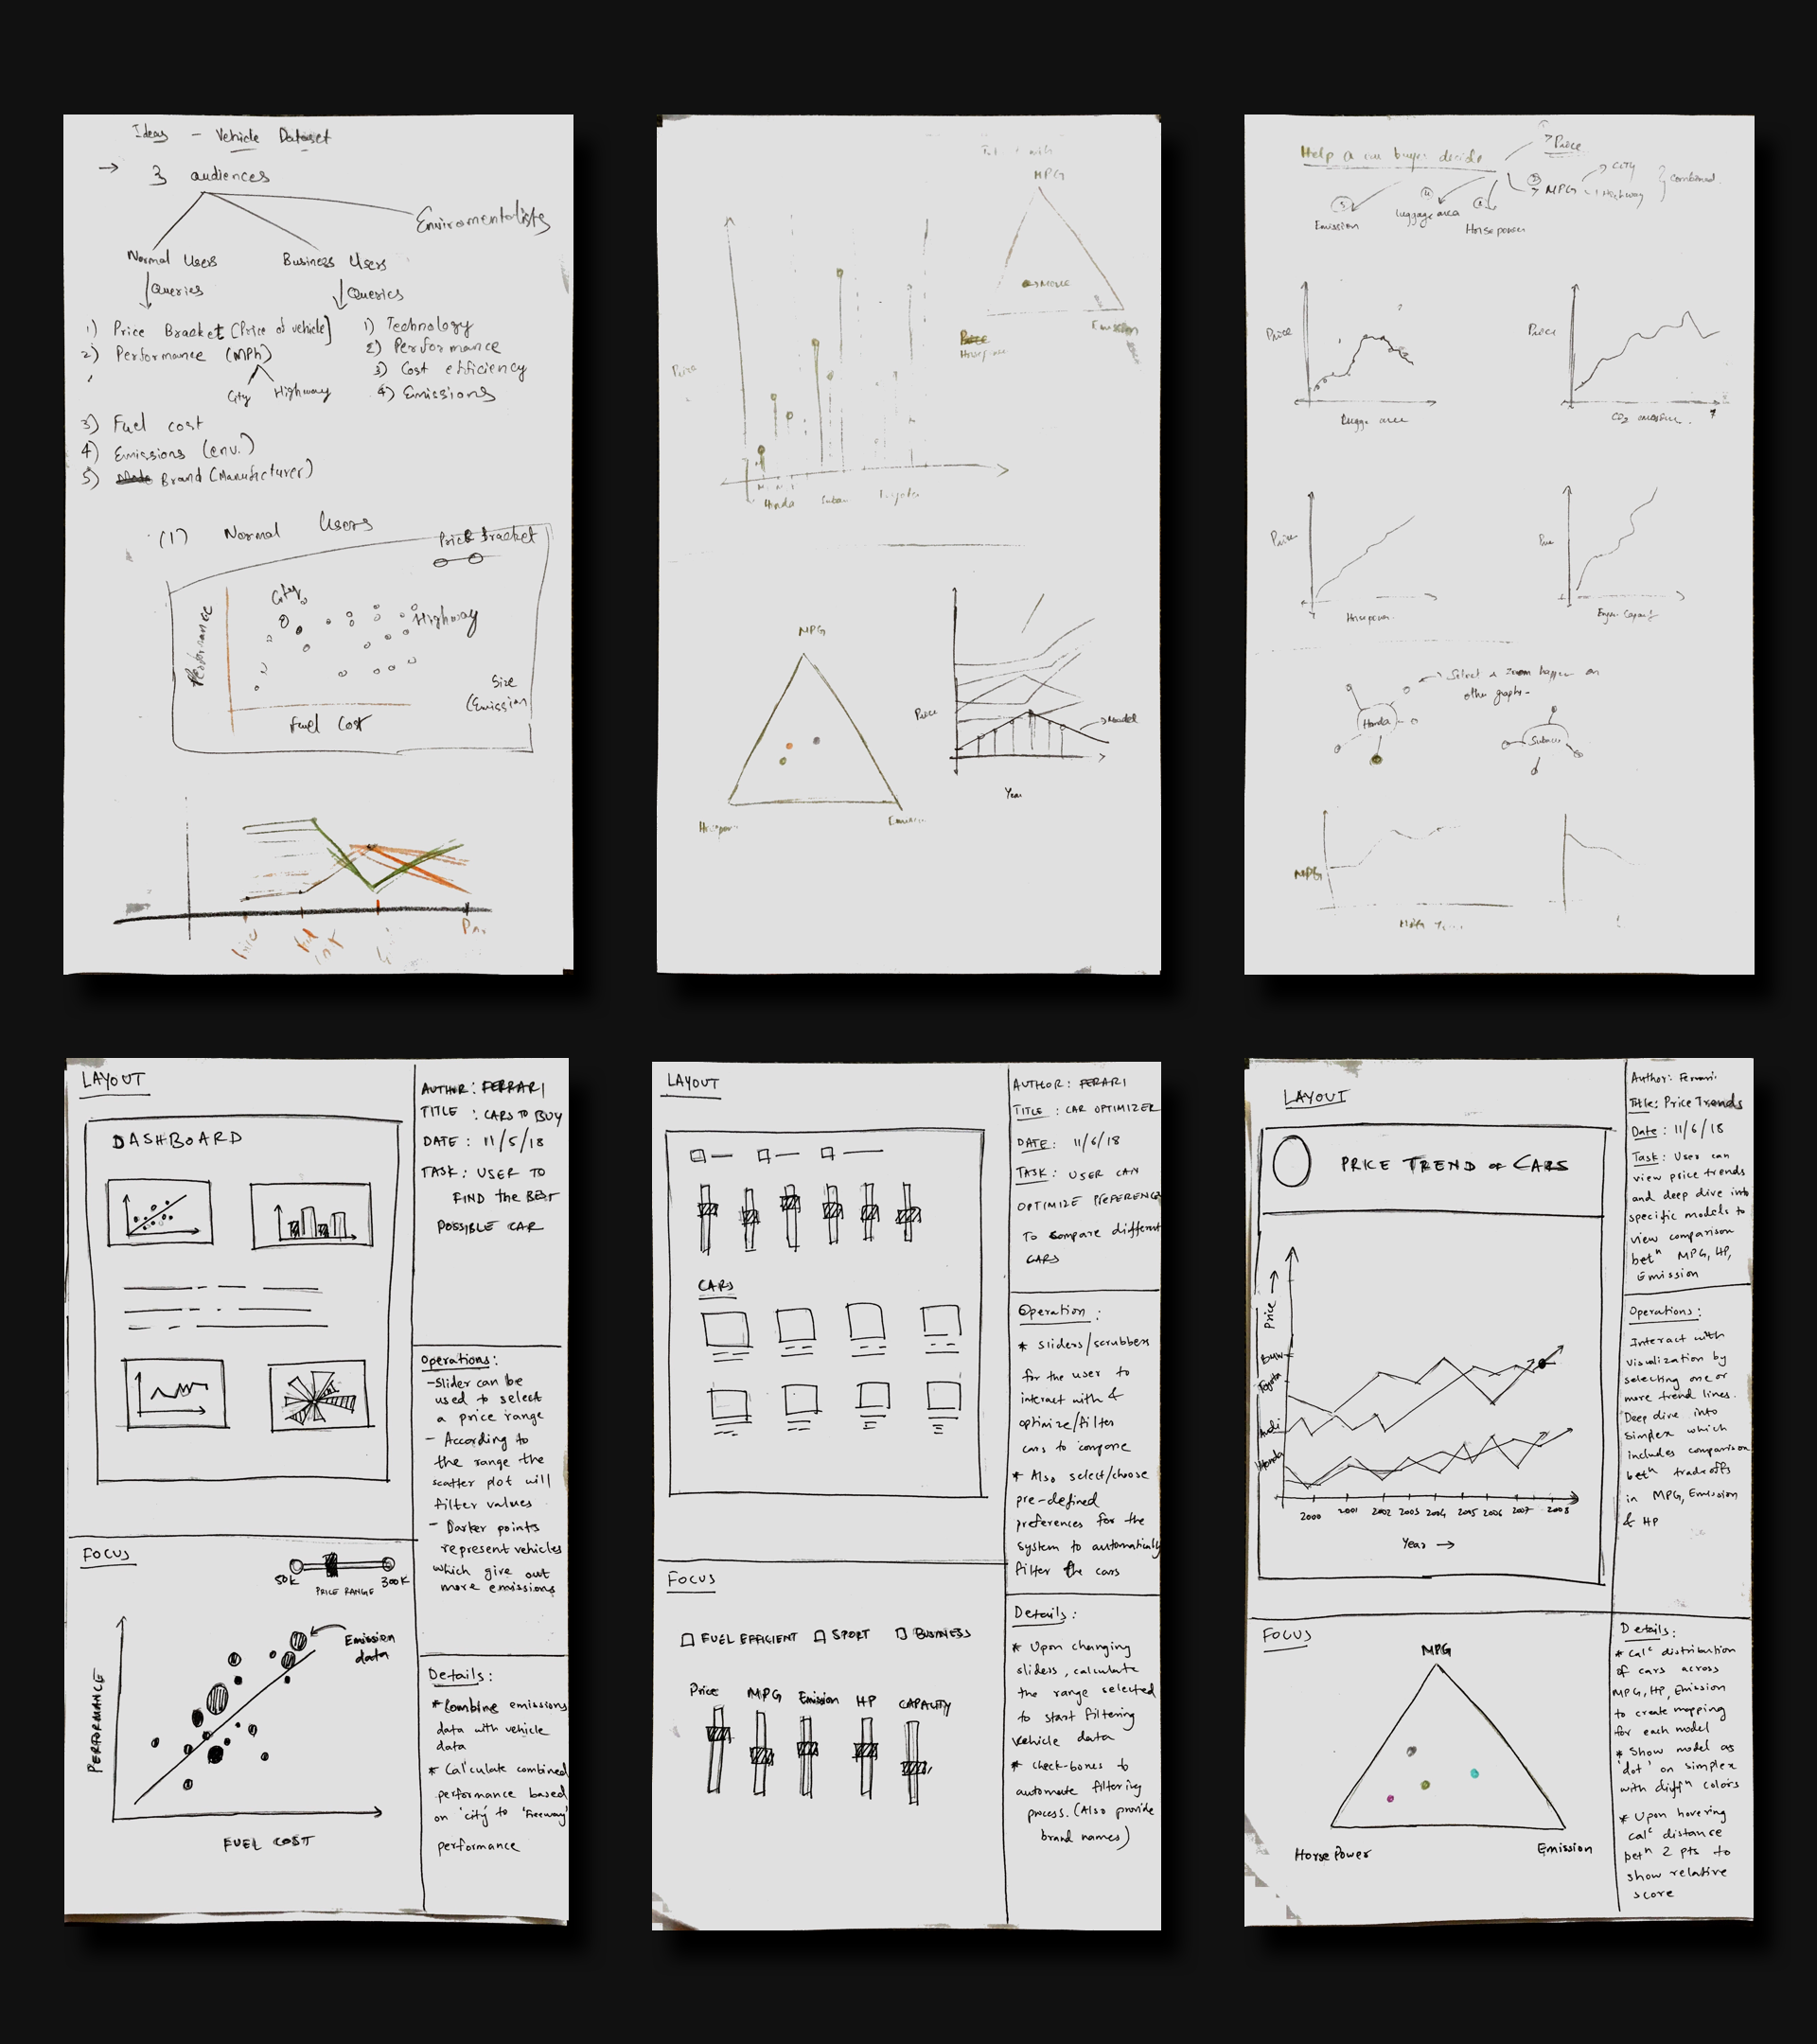 Ideas - Vehicle Dataset
→ 3 audiences
Enviromentalists
Normal Users
Business Users
Queries
Queries
1) Price Bracket [Price of vehicle]
2) Performance (MPh)
City Highway
3) Fuel cost
4) Emissions (env.)
5) Brand (Manufacturer)
1) Technology
2) Performance
3) Cost efficiency
4) Emissions
(1) Normal Users
Price Bracket
City
Highway
Performance
Size
(Emission
Fuel Cost
MPG
Price
Honda
Emission
MPG
Price
Model
Year
Help a car buyer decide
Price
MPG
City
Highway
Combined
Emission
Luggage area
Horsepower
Price
Price
CO2 emission
Price
Horsepower
Honda
Subaru
other graphs
MPG
LAYOUT
DASHBOARD
AUTHOR: FERRARI
TITLE : CARS TO BUY
DATE : 11/5/18
TASK : USER TO
FIND the BEST
POSSIBLE CAR
Operations:
- Slider can be
used to select
a price range
- According to
the range the
scatter plot will
filter values
- Darker points
represent vehicles
which give out
more emissions
FOCUS
50K
PRICE RANGE
300K
Emission
data
PERFORMANCE
FUEL COST
Details:
* Combine emissions
data with vehicle
data
* Calculate combined
performance based
on 'city' to 'Freeway'
performance
LAYOUT
CARS
AUTHOR: FERARI
TITLE : CAR OPTIMIZER
DATE: 11/6/18
TASK: USER CAN
OPTIMIZE PREFERENCE
To compare different
CARS
Operation:
* Sliders/scrubbers
for the user to
interact with &
optimize/filter
cars to compare
* Also select/choose
pre-defined
preferences for the
system to automatically
filter the cars
FOCUS
FUEL EFFICIENT SPORT BUSINESS
Price MPG Emission HP CAPACITY
Details:
* Upon changing
sliders, calculate
the range selected
to start filtering
vehicle data
* check-boxes to
automate filtering
process. (Also provide
brand names)
LAYOUT
PRICE TREND of CARS
Price →
BMW
Toyota
Audi
Honda
2000 2001 2002 2003 2004 2005 2006 2007 2008
Year →
Author: Ferrari
Title: Price Trends
Date: 11/6/18
Task: User can
view price trends
and deep dive into
specific models to
view comparison
betn MPG, HP,
Emission
Operations:
Interact with
visualization by
selecting one or
more trend lines.
Deep dive into
simplex which
includes comparison
betn tradeoffs
in MPG, Emission
& HP
FOCUS
MPG
Horse Power
Emission
Details:
* Calc distribution
of cars across
MPG, HP, Emission
to create mapping
for each model
* Show model as
'dot' on simplex
with diffn colors
* Upon hovering
calc distance
betn 2 pts to
show relative
score